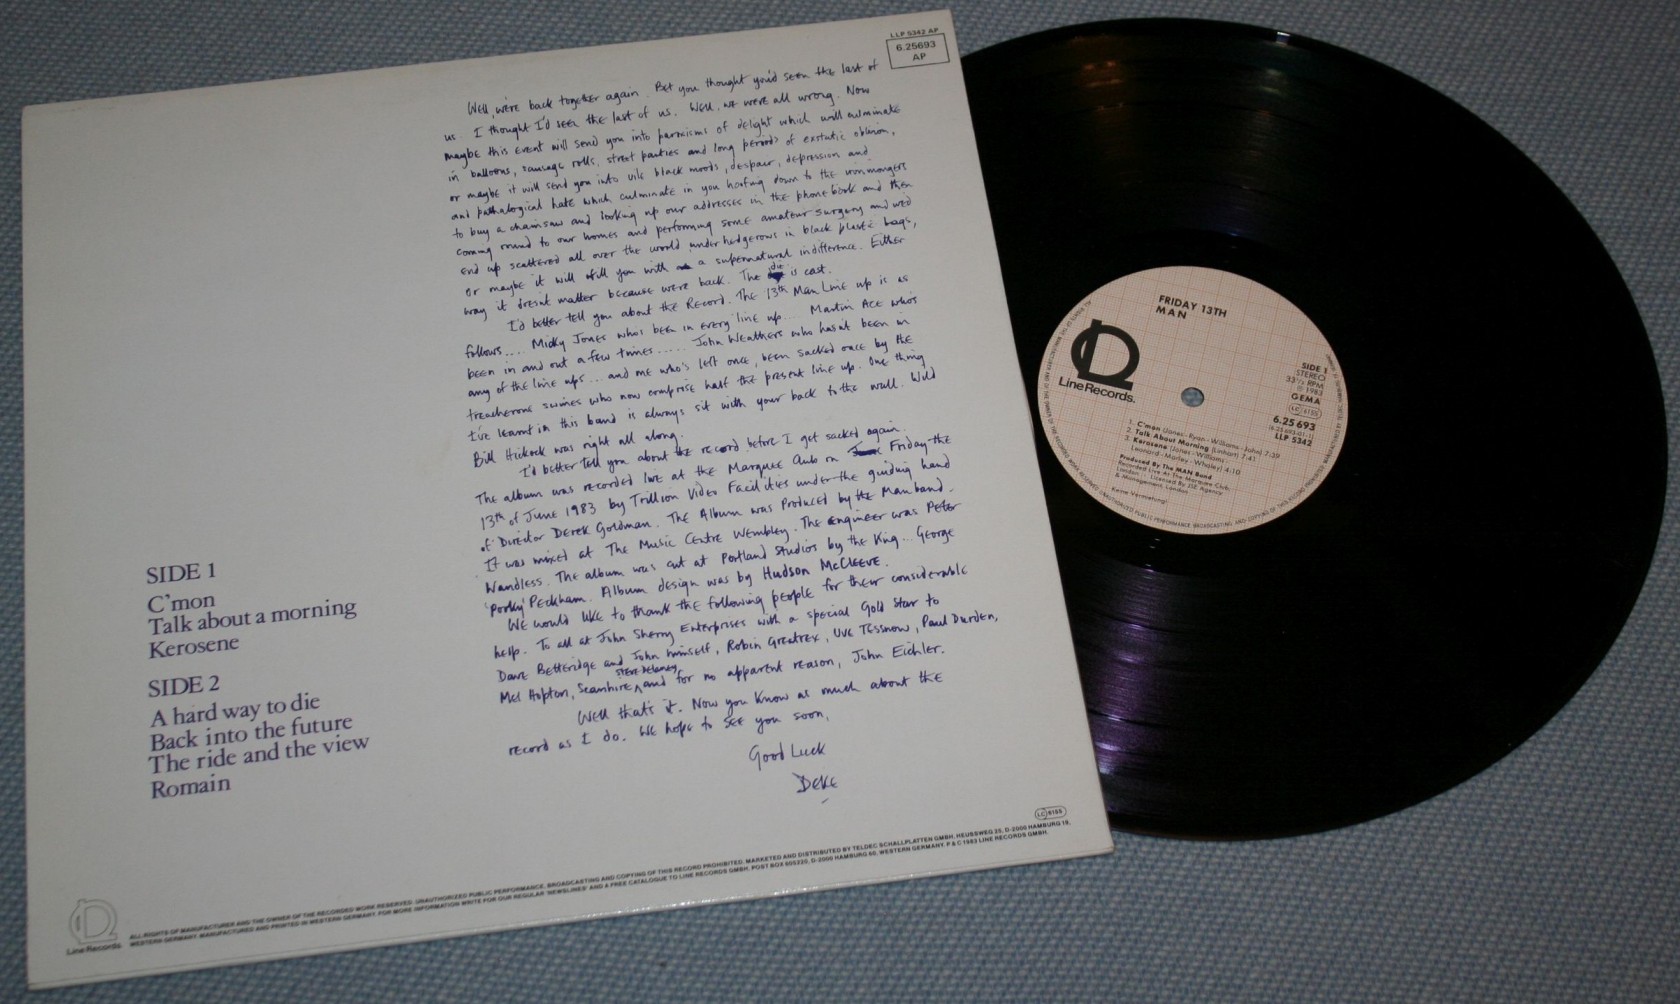 LLP 5342 AP
6.25693
AP
Well, we're back together again. Bet you thought you'd seen the last of
us. I thought I'd seen the last of us. Well, we were all wrong. Now
maybe this event will send you into paroxisms of delight which will culminate
in balloons, sausage rolls, street parties and long periods of exstatic oblivion,
or maybe it will send you into vile black moods, despair, depression and
and pathalogical hate which culminate in you hoofing down to the ironmongers
to buy a chainsaw and looking up our addresses in the phone book and then
coming round to our homes and performing some amateur surgery and we'd
end up scattered all over the world under hedgerows in black plastic bags,
or maybe it will fill you with a supernatural indifference. Either
way it doesnt matter because were back. The die is cast.
I'd better tell you about the Record. The 13th Man Line up is as
follows.... Micky Jones who's been in every line up.... Martin Ace who's
been in and out a few times..... John Weathers who hasnt been in
any of the line ups... and me who's left once, been sacked once by the
treacherous swines who now comprise half the present line up. One thing
I've learnt in this band is always sit with your back to the wall. Wild
Bill Hickock was right all along.
I'd better tell you about the record before I get sacked again.
The album was recorded live at the Marquee Club on Friday the
13th of June 1983 by Trillion Video Facilities under the guiding hand
of Director Derek Goldman. The Album was Produced by the Man band.
It was mixed at The Music Centre Wembley. The engineer was Peter
Wandless. The album was cut at Portland Studios by the King... George
'Porky' Peckham. Album design was by Hudson McCleeve.
We would like to thank the following people for their considerable
help. To all at John Sherry Enterprises with a special Gold Star to
Dave Betteridge and John himself, Robin Greatrex, Uve Tessnow, Paul Durden,
Mel Hopton, Seamhire, Steve Delaney and for no apparent reason, John Eichler.
Well that's it. Now you know as much about the
record as I do. We hope to see you soon,
Good Luck
Deke
SIDE 1
C'mon
Talk about a morning
Kerosene
SIDE 2
A hard way to die
Back into the future
The ride and the view
Romain
LC 6155
Line Records
ALL RIGHTS OF MANUFACTURER AND THE OWNER OF THE RECORDED WORK RESERVED. UNAUTHORIZED PUBLIC PERFORMANCE, BROADCASTING AND COPYING OF THIS RECORD PROHIBITED. MARKETED AND DISTRIBUTED BY TELDEC SCHALLPLATTEN GMBH, HEUSSWEG 25, D-2000 HAMBURG 19,
WESTERN GERMANY. MANUFACTURED AND PRINTED IN WESTERN GERMANY. FOR MORE INFORMATION WRITE FOR OUR REGULAR 'NEWSLINES' AND A FREE CATALOGUE TO LINE RECORDS GMBH, POST BOX 605220, D-2000 HAMBURG 60, WESTERN GERMANY. P & C 1983 LINE RECORDS GMBH.
FRIDAY 13TH
MAN
Line Records.
SIDE 1
STEREO
33⅓ RPM
℗ 1983
GEMA
LC 6155
6.25 693
(6.25 693-01-1)
LLP 5342
1. C'mon (Jones-Ryan-Williams-John) 7:39
2. Talk About Morning (Linhart) 7:41
3. Kerosene (Jones-Williams-
Leonard-Morley-Whaley) 4:10
Produced By The MAN Band
Recorded Live At The Marquee Club,
London - Licensed By JSE Agency
& Management, London
Keine Vermietung!